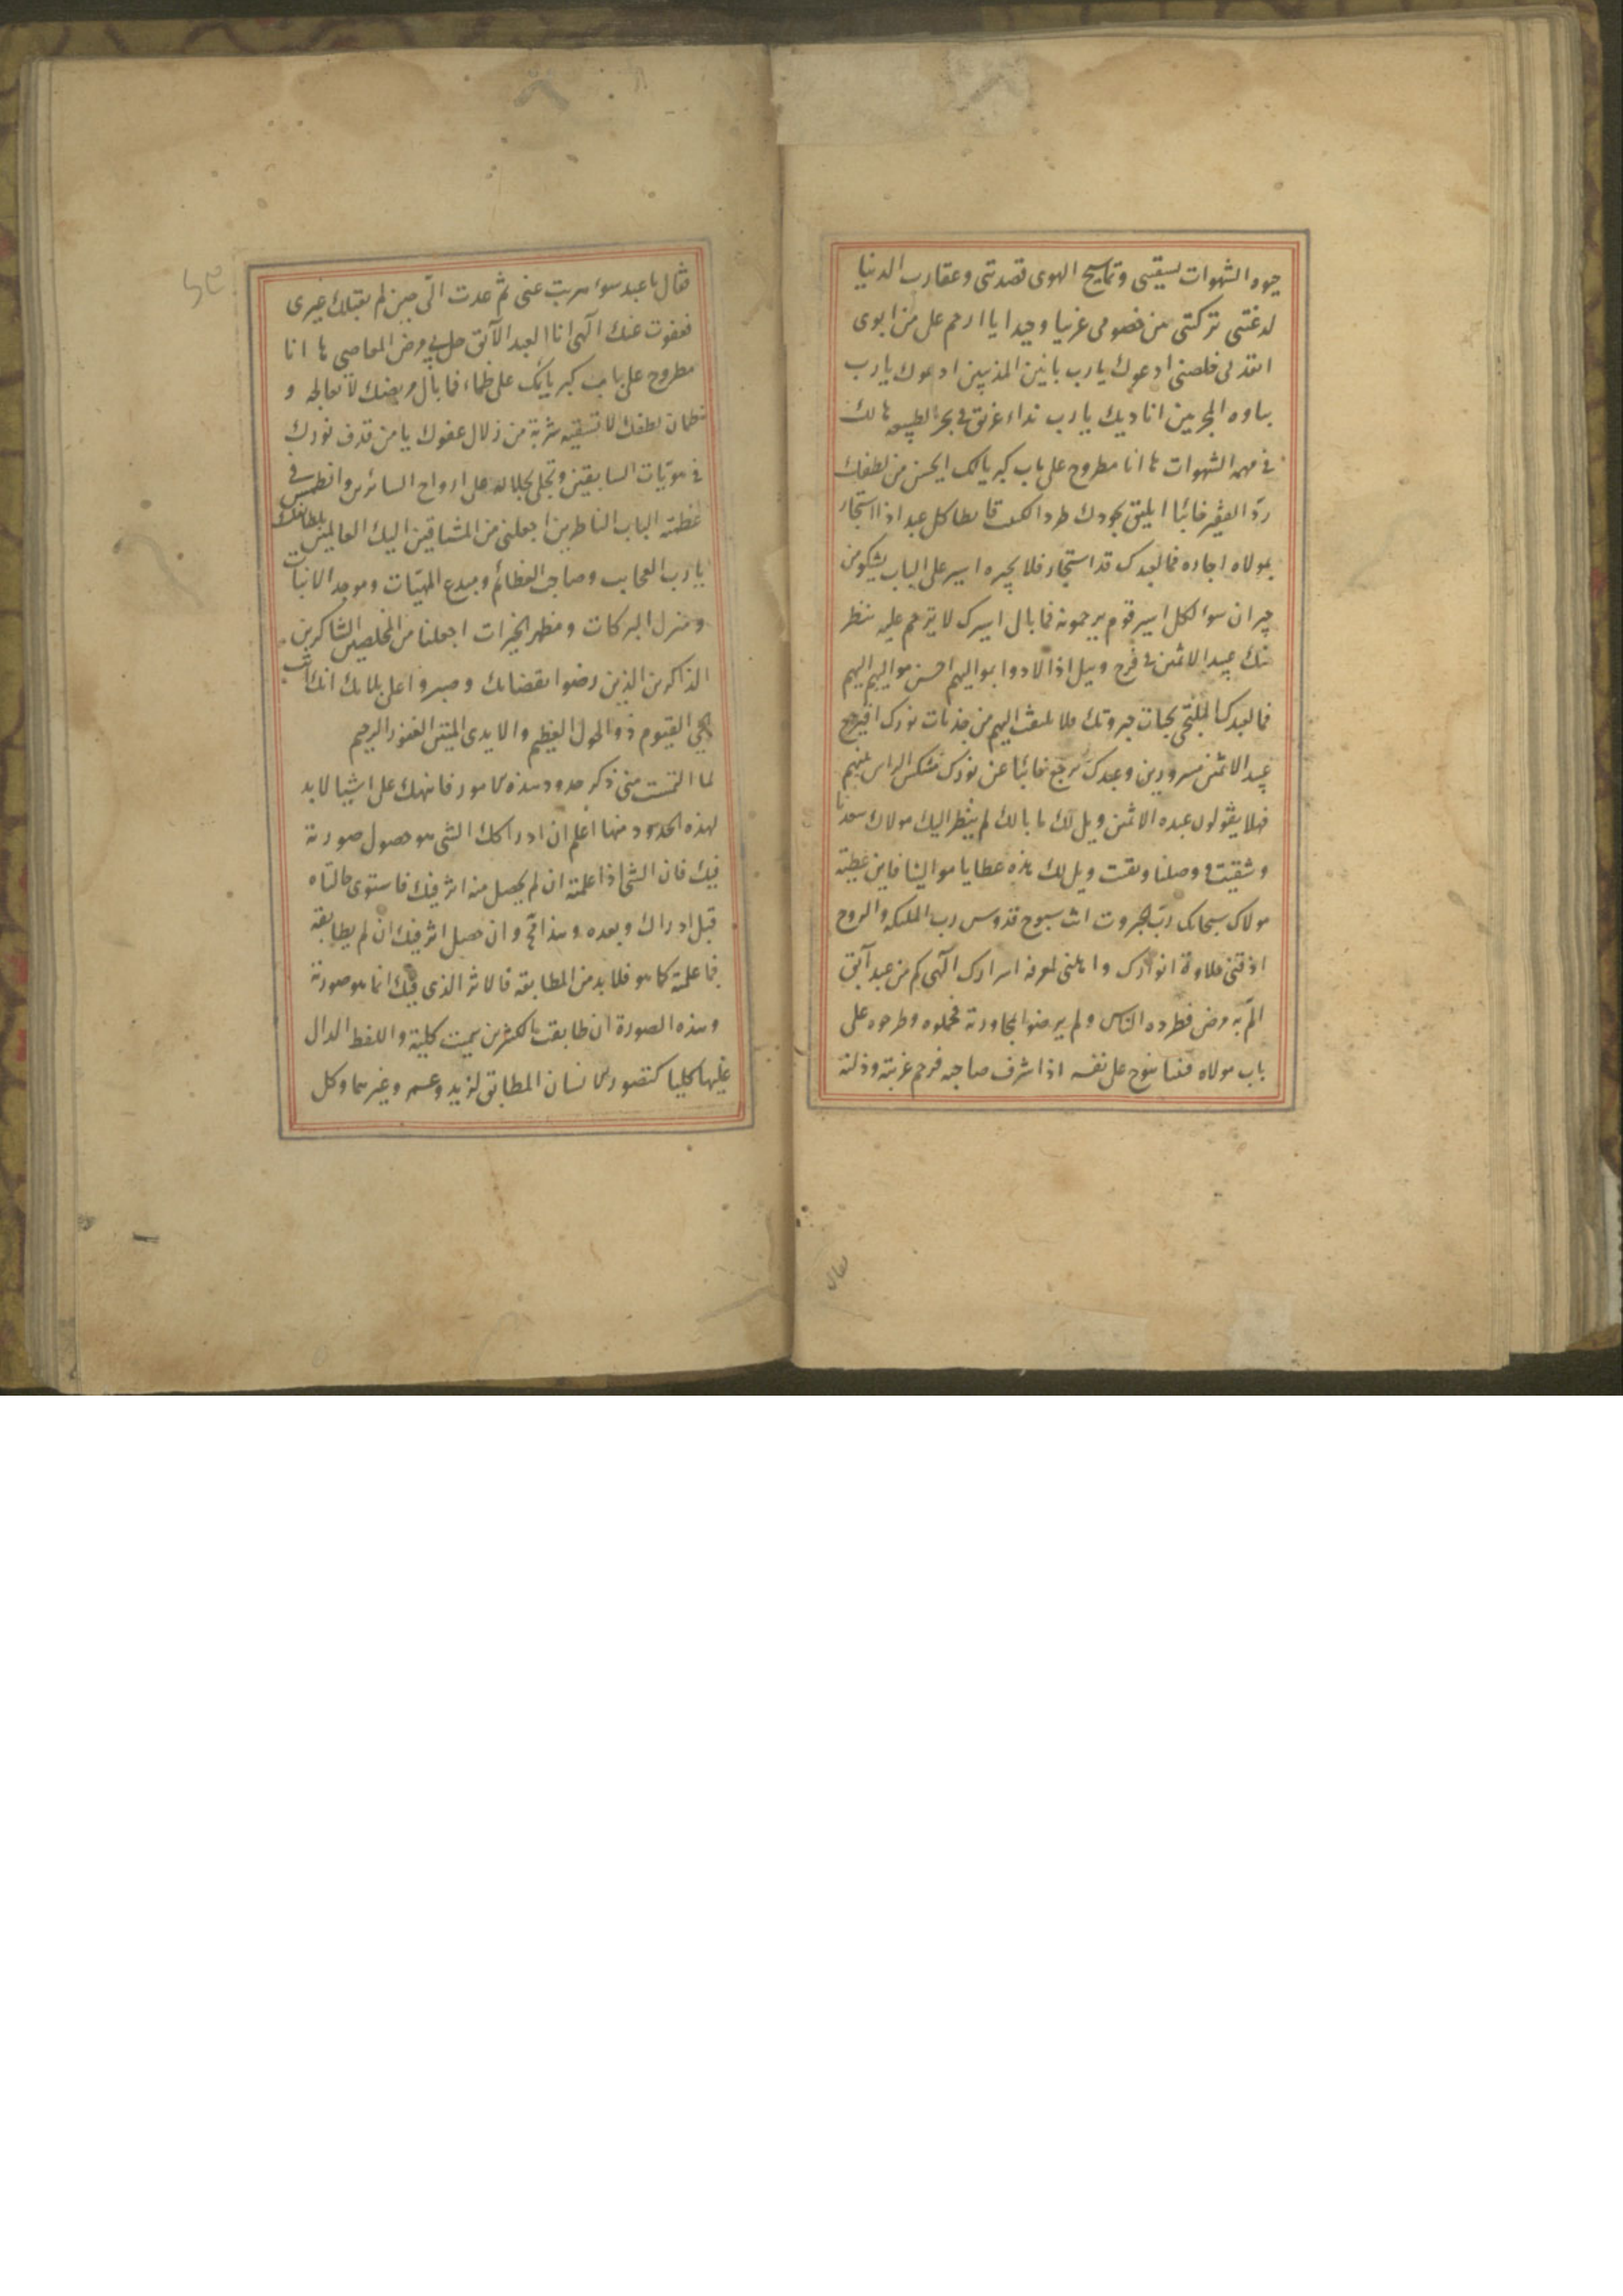 حيوة الشهوات لسيقنى وتماسيح الهوى قصدتنى وعقارب الدنيا
لدغتنى تركتنى من خصومى غريبا وحيدا يا ارحم على من ابوى
انقذنى فخلصنى ادعوك يا رب بانين المذنبين ادعوك يا رب
بتاوه المجرمين اناديك يا رب نداء غريق فى بحر الطبيعة هالك
فى مهمه الشهوات ها انا مطروح على باب كبريائك ايحسن من لطفك
رد الفقير خائبا ايليق بجودك طرد قانطا كل عبد اذا استجار
بمولاه اجاره فما لعبدك قد استجار فلا يجيره اسير على الباب يشكو من
جيران سوء لكل اسير قوم يرحمونه فما بال اسيرك لا ترحم عليه بنظر
منك عبيد الاثمين فى فرح وبيل اذا لاذوا بمواليهم احسن مواليهم اليهم
فما لعبدك الملتجى بجناب جبروتك فلا تلتفت اليهم من جذبات نورك افيرجع
عبيد الاثمين مسرورين وعبدك يرجع خائبا عن نورك منتكس الراس بينهم
فهلا يقولون عبدة الاثمين ويل لك ما بالك لم ينظر اليك مولاك سعدنا
وشقيت ووصلنا وبقيت ويل لك هذه عطايا موالينا فاين عطية
مولاك سبحانك رب الجبروت انت سبوح قدوس رب الملئكة والروح
اذقتنى حلاوة انوارك واهلنى لمعرفة اسرارك الهى كم من عبد آبق
الم به مرض فطرده الناس ولم يرضوا بمجاورته فحملوه وطرحوه على
باب مولاه فنا ينوح على نفسه اذا شرف صاحبه فرحم غربته وذلته
فقال يا عبد سوء هربت عنى ثم عدت الى حين لم يقبلك غيرى
فعفوت عنك الهى انا العبد الآبق حل بى مرض المعاصى ها انا
مطروح على باب كبريائك على ظماء فما بال مريضك لا تعالجه و
ظمان لطفك لا تسقيه شربة من زلال عفوك يا من قذف نوره
فى هويات السابقين وتجلى بجلاله على ارواح السائرين وانطمس فى
عظمته الباب الناظرين اجعلنى من المشتاقين اليك العالمين بلطائفك
يا رب العجايب وصاحب العظائم ومبدع الماهيات وموجد الانيات
ومنزل البركات ومظهر الخيرات اجعلنا من المخلصين الشاكرين
الذاكرين الذين رضوا بقضائك وصبروا على بلائك انك انت
الحى القيوم ذو الحول العظيم والايدى المتين الغفور الرحيم
لما التمست منى ذكر حدود هذه الامور فانبهك على اشيا لابد
لهذه الحدود منها اعلم ان ادراكك الشى هو حصول صورته
فيك فان الشى اذا علمته ان لم يحصل منه اثر فيك فاستوى حالتاه
قبل ادراك وبعده وهذا مح وان حصل اثر فيك ان لم يطابقه
فما علمته كما هو فلابد من المطابقه فالاثر الذى فيك انما هو صورته
وهذه الصورة ان طابقت بالكثيرين سميت كلية واللفظ الدال
عليها كليا كتصور الانسان المطابق لزيد وعمر وغيرهما وكل